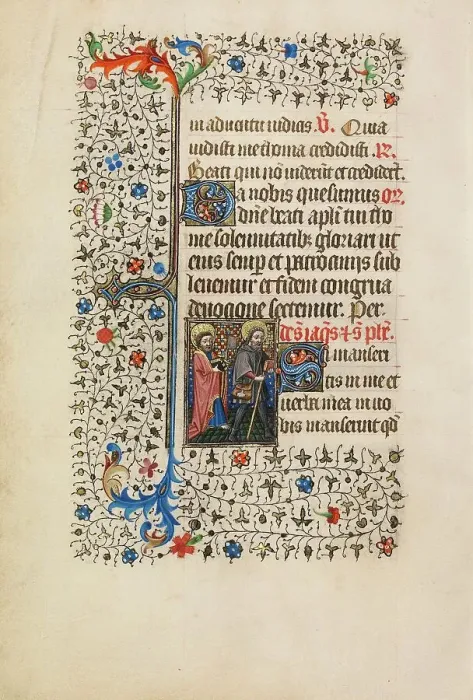 in adventu iudicis. V̄. Quia
uidisti me thoma credidisti. R̄.
Beati qui nō uiderūt et credider̄t.
Da nobis quesumus or̄.
dn̄e beati apl̄i tui tho
me solemnitatib; gloriari ut
eius semp̱ et patrociniis sub
leuemur et fidem congrua
deuocione sectemur. Per.
de s̄ iaq̄s et s̄ ph̄e.
Si manseri
tis in me et
uerba mea in uo
bis manserint qd̄